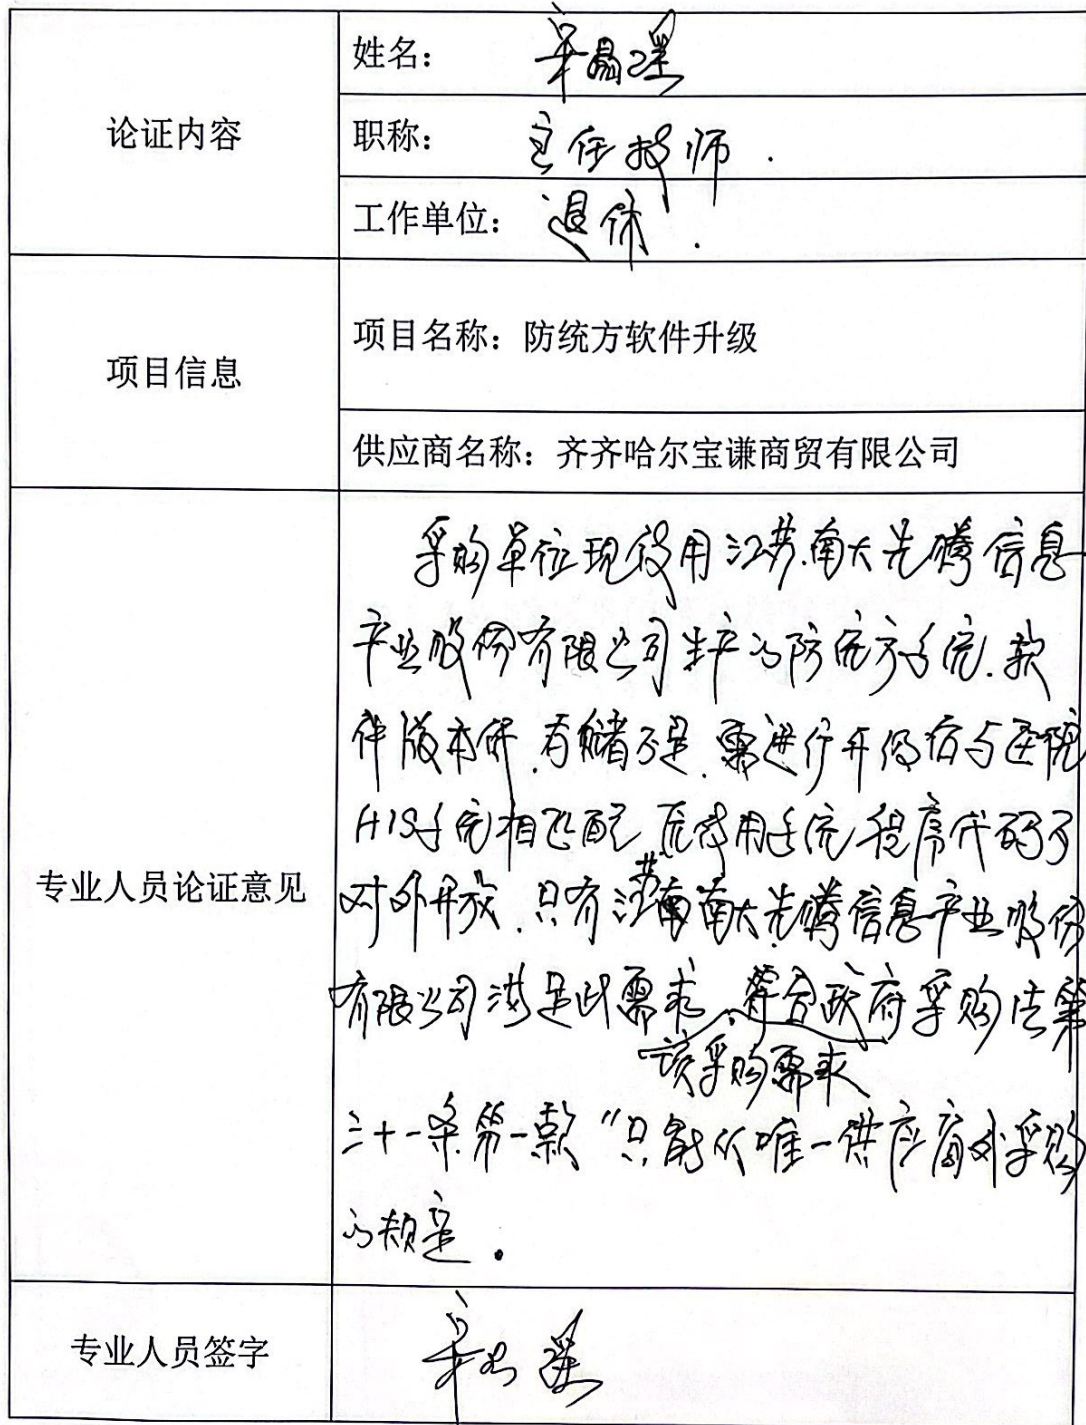 论证内容
姓名:
职称: 主任技师.
工作单位: 退休.
项目信息
项目名称: 防统方软件升级
供应商名称: 齐齐哈尔宝谦商贸有限公司
专业人员论证意见
采购单位现使用江苏南大先腾信息
产业股份有限公司生产的防统方系统.软
件版本低.存储不足.需进行升级后与医院
HIS系统相匹配.应使用系统程序代码不
对外开放.只有江苏南大先腾信息产业股份
有限公司满足此需求.该采购需求符合政府采购法第
三十一条第一款“只能从唯一供应商处采购
的规定.
专业人员签字